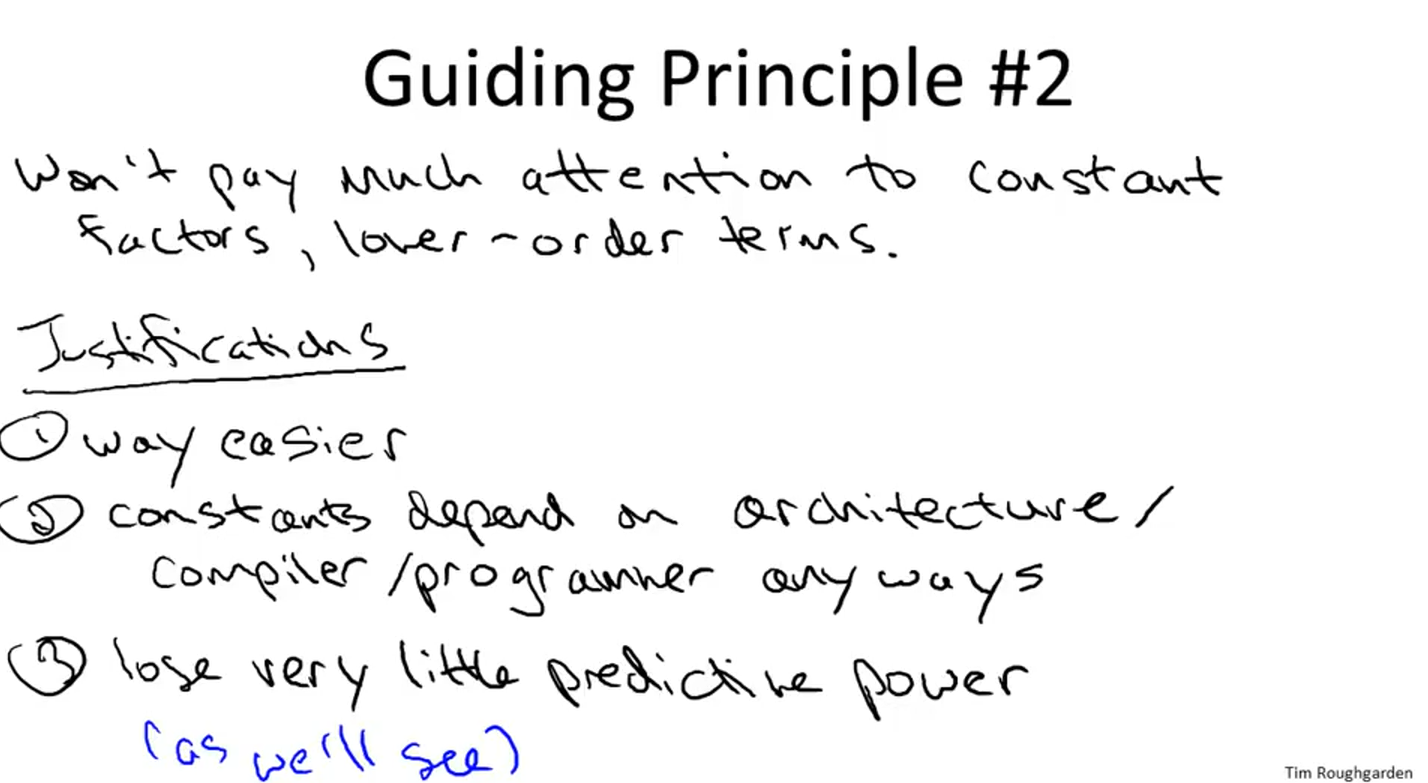 Guiding Principle #2
Won't pay much attention to constant
factors, lower-order terms.
Justifications
① way easier
② constants depend on architecture/
compiler/programmer anyways
③ lose very little predictive power
(as we'll see)
Tim Roughgarden